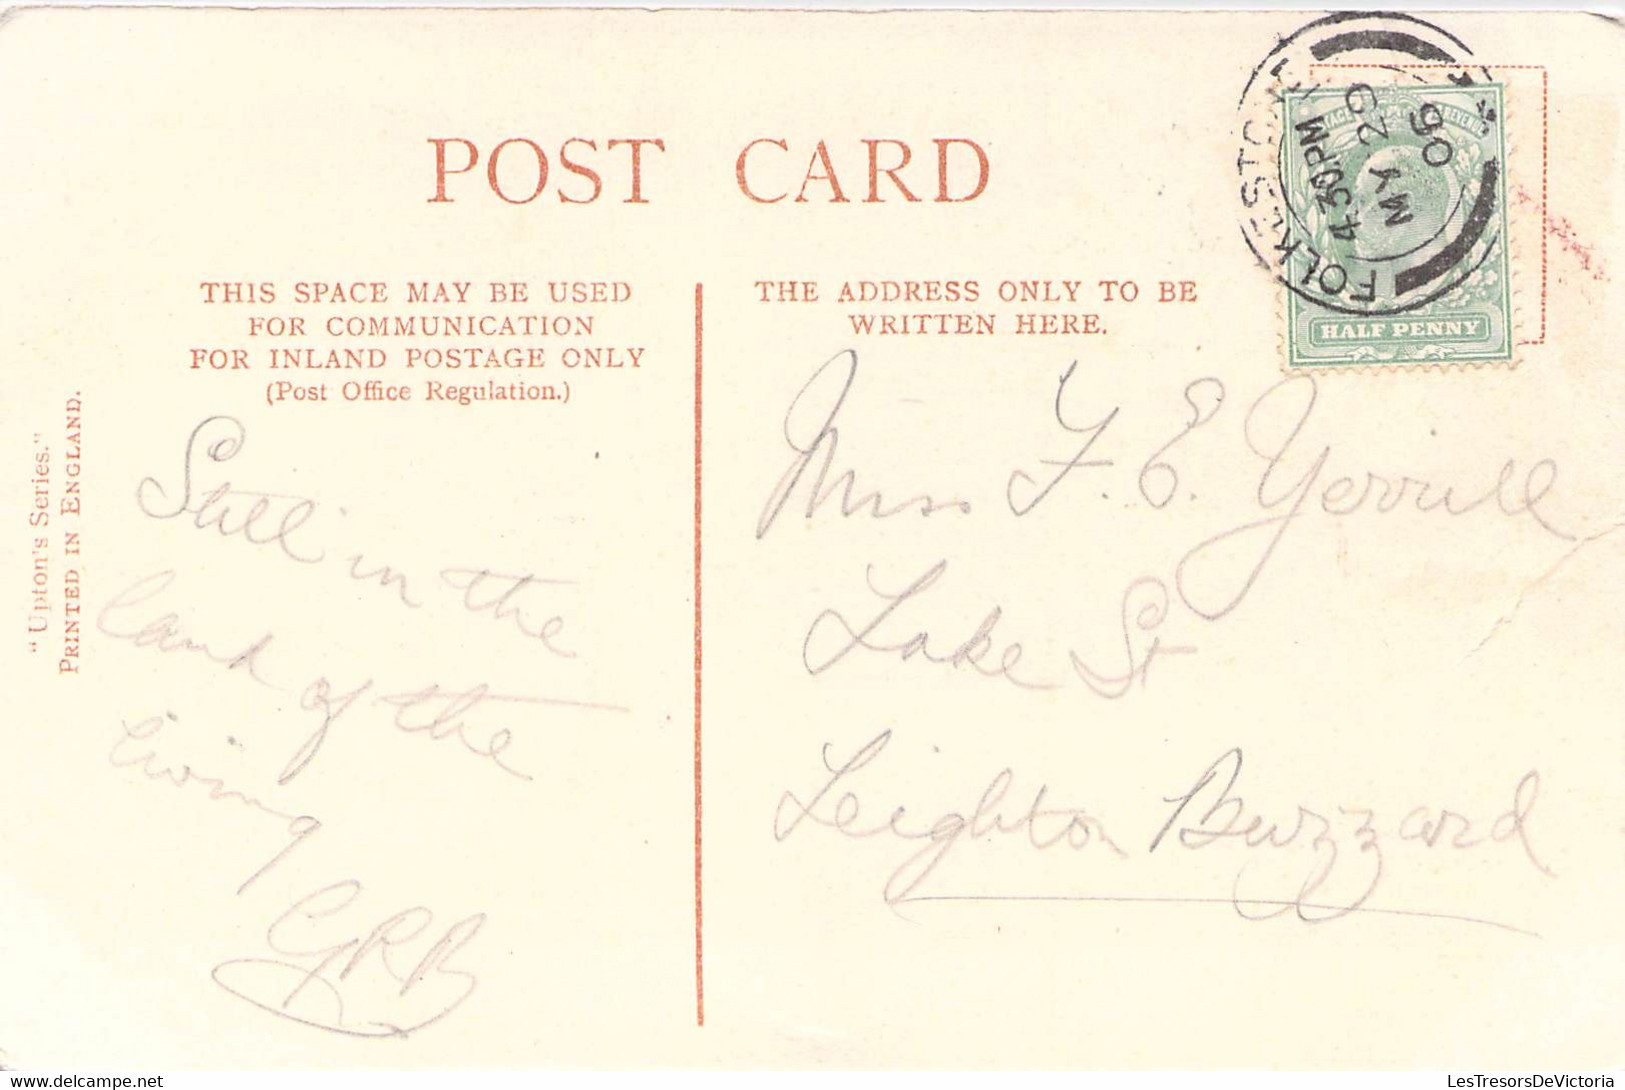 POST CARD
THIS SPACE MAY BE USED
FOR COMMUNICATION
FOR INLAND POSTAGE ONLY
(Post Office Regulation.)
THE ADDRESS ONLY TO BE
WRITTEN HERE.
"Upton's Series."
PRINTED IN ENGLAND.
FOLKESTONE
4.30PM
MY 29
HALF PENNY
Still in the
land of the
living
GRB
Miss F. E. Yerrill
Lake St
Leighton Buzzard
LesTresorsDeVictoria
delcampe.net